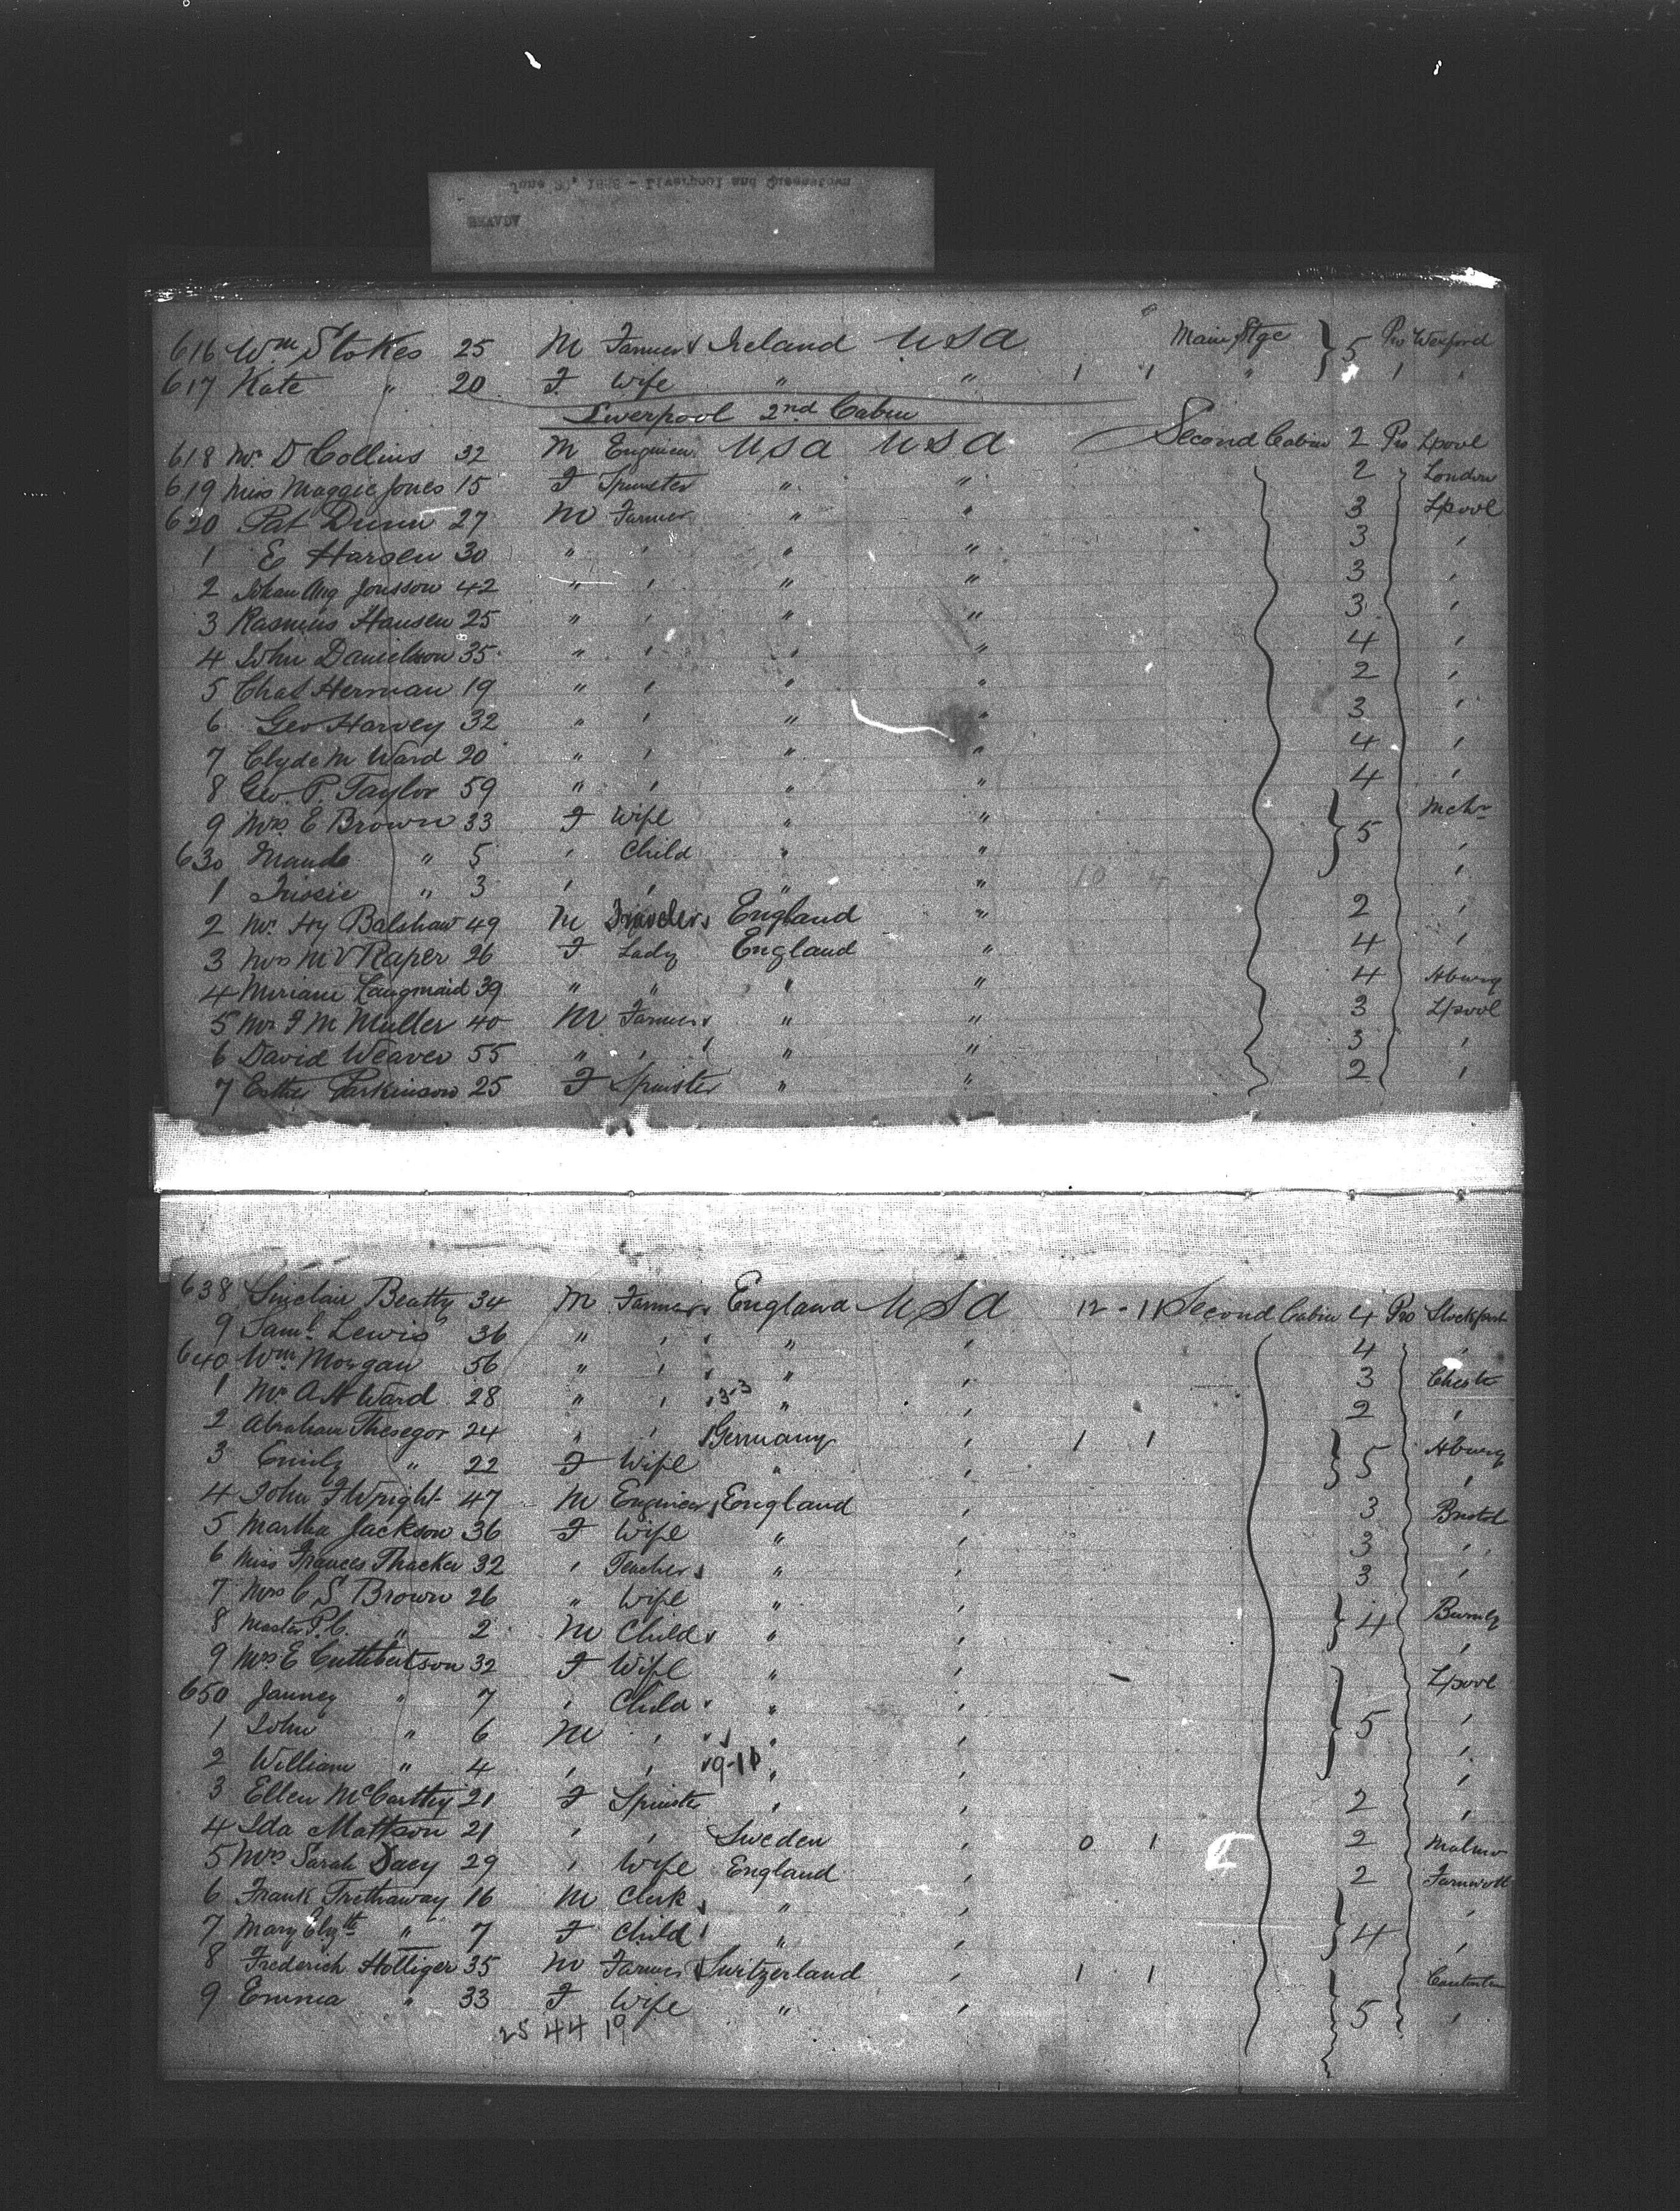 June 30, 1888 - Liverpool and Queenstown
616 Wm Stokes 25 M Farmer Ireland U S A Main Stge } 5 Pro Wexford
617 Kate " 20 F Wife " " 1 1 " ' "
Liverpool 2nd Cabin
618 Mr D Collins 32 M Engineer U S A U S A Second Cabin 2 Pro Lpool
619 Miss Maggie Jones 15 F Spinster " " 2 London
620 Pat Dunn 27 M Farmer " " 3 Lpool
1 E Harsen 30 " ' " " 3 '
2 Johan Aug Jonsson 42 " ' " " 3 '
3 Rasmus Hansen 25 " ' " " 3 '
4 John Danielson 35 " ' ' " 4 '
5 Chas Herman 19 " ' ' " 2 '
6 Geo Harvey 32 " ' " " 3 '
7 Clyde M Ward 20 " ' " " 4 '
8 Geo. P. Taylor 59 " ' " " 4 '
9 Mrs E Brown 33 F Wife " " } 5 Mchr
630 Maude " 5 ' Child " " '
1 " 3 ' ' " " 10 '
2 Mr. Hy Balshaw 49 M Travelers England " 2 '
3 Mrs M V Raper 26 F Lady England " 4 '
4 Miriam Langmaid 39 " " ' " 4 Hburg
5 Mr F M Muller 40 M Farmer " " 3 Lpool
6 David Weaver 55 " ' " " 3 '
7 Esther Parkinson 25 F Spinster " " 2 '
638 Sinclair Beatty 34 M Farmer England U S A 12 - 11 Second Cabin 4 Pro Stockport
9 Saml. Lewis 36 " ' " ' 4 '
640 Wm Morgan 56 " ' " ' 3 Chester
1 Mr. A H Ward 28 " ' 3-3 " ' 2 '
2 Abraham Thesegor 24 " ' Germany ' 1 1 } 5 Hburg
3 Emily " 22 F Wife " ' '
4 John F Wright 47 M Engineer England ' 3 Bristol
5 Martha Jackson 36 F Wife " ' 3 '
6 Miss Frances Thacker 32 ' Teacher " ' 3 '
7 Mrs C S Brown 26 " Wife " ' } 4 Burnley
8 Master P. C. " 2 M Child " ' '
9 Mrs E Cuthbertson 32 F Wife " ' } 5 Lpool
650 Janney " 7 ' Child " ' '
1 John " 6 M ' ' ' '
2 William " 4 ' ' 9-11 ' ' '
3 Ellen McCarthy 21 F Spinster ' ' 2 '
4 Ida Mattson 21 ' ' Sweden ' 0 1 2 Malmo
5 Mrs Sarah Dacy 29 ' Wife England ' 2
6 Frank Trethaway 16 M Clerk " ' } 4 '
7 Mary Elyth " 7 F Child " ' '
8 Frederich Holliger 35 M Farmer Switzerland ' 1 1 } 5
9 Emma " 33 F Wife " ' '
25 44 19